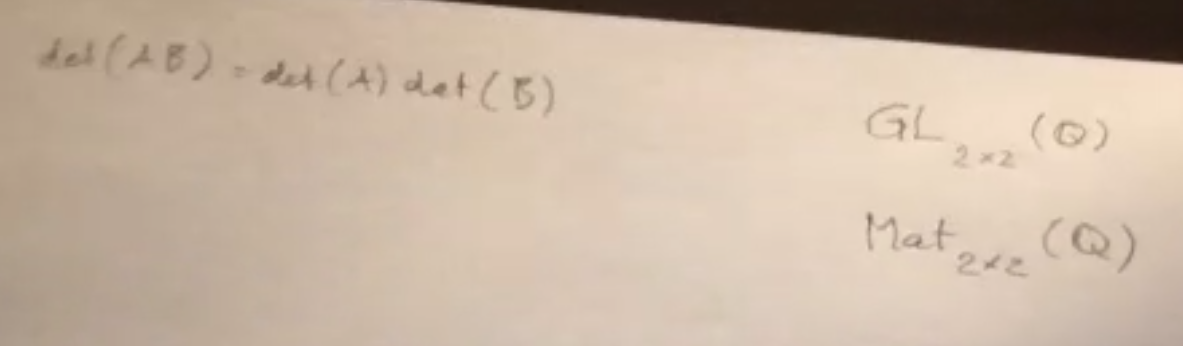 det(AB) = det(A) det(B)
GL₂ₓ₂(Q)
Mat₂ₓ₂(Q)